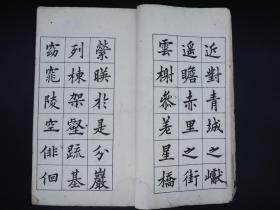 近對青城之巘
遥瞻赤里之街
雲榭叅差星橋
縈暎於是分巖
列棟架壑䟽基
窈窕陵空俳佪